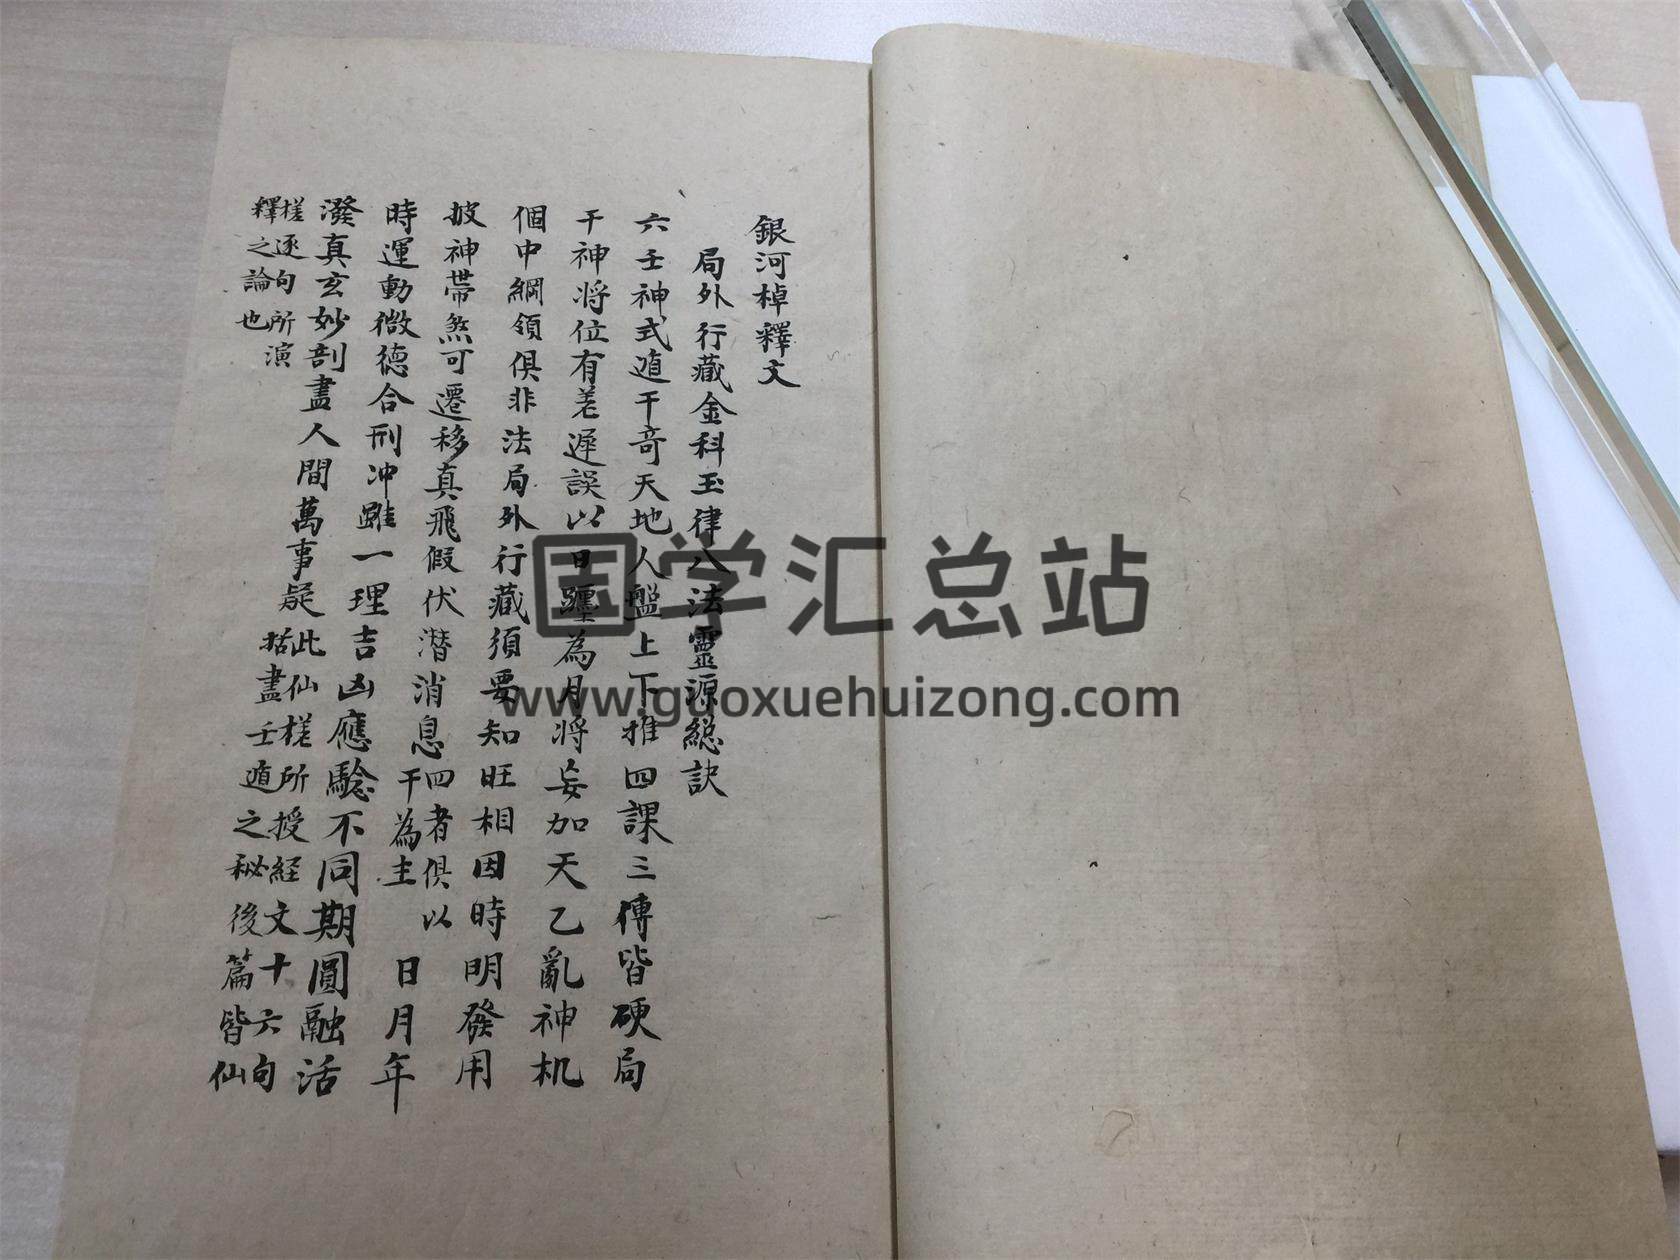 銀河棹釋文
局外行藏金科玉律八法靈源總訣
六壬神式遁干奇天地人盤上下推四課三傳皆硬局
干神将位有差遲誤以日躔為月将妄加天乙亂神机
個中綱領俱非法局外行藏須要知旺相因時明發用
披神帶煞可遷移真飛假伏潜消息四者俱以干為主日月年
時運動微德合刑冲雖一理吉凶應驗不同期圓融活
潑真玄妙剖盡人間萬事疑此仙槎所授経文十六句括盡壬遁之秘後篇皆仙
槎逐句所演釋之論也
国学汇总站
www.guoxuehuizong.com